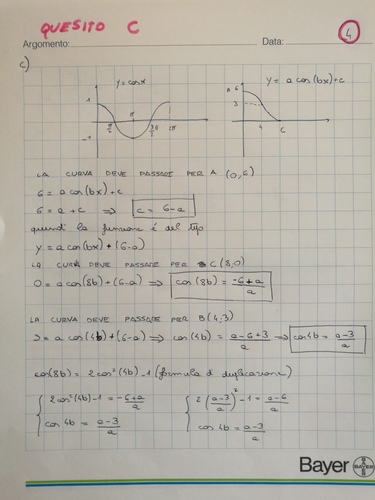 QUESITO C
4
Argomento:
Data:
c)
y = cosx
y = a cos(bx)+c
1
-1
π/2
π
3/2π
2π
A 6
3
4
C
LA CURVA DEVE PASSARE PER A (0,6)
6 = a cos(bx)+c
6 = a + c ⇒ c = 6-a
quindi la funzione è del tipo
y = a cos(bx) + (6-a)
LA CURVA DEVE PASSARE PER C(8,0)
0 = a cos(8b) + (6-a) ⇒ cos(8b) = -6+a/a
LA CURVA DEVE PASSARE PER B(4,3)
3 = a cos(4b) + (6-a) ⇒ cos(4b) = a-6+3/a ⇒ cos4b = a-3/a
cos(8b) = 2cos²(4b) -1 (formula di duplicazione)
{ 2cos²(4b)-1 = -6+a/a { 2(a-3/a)² -1 = a-6/a
cos 4b = a-3/a cos 4b = a-3/a
Bayer BAYER